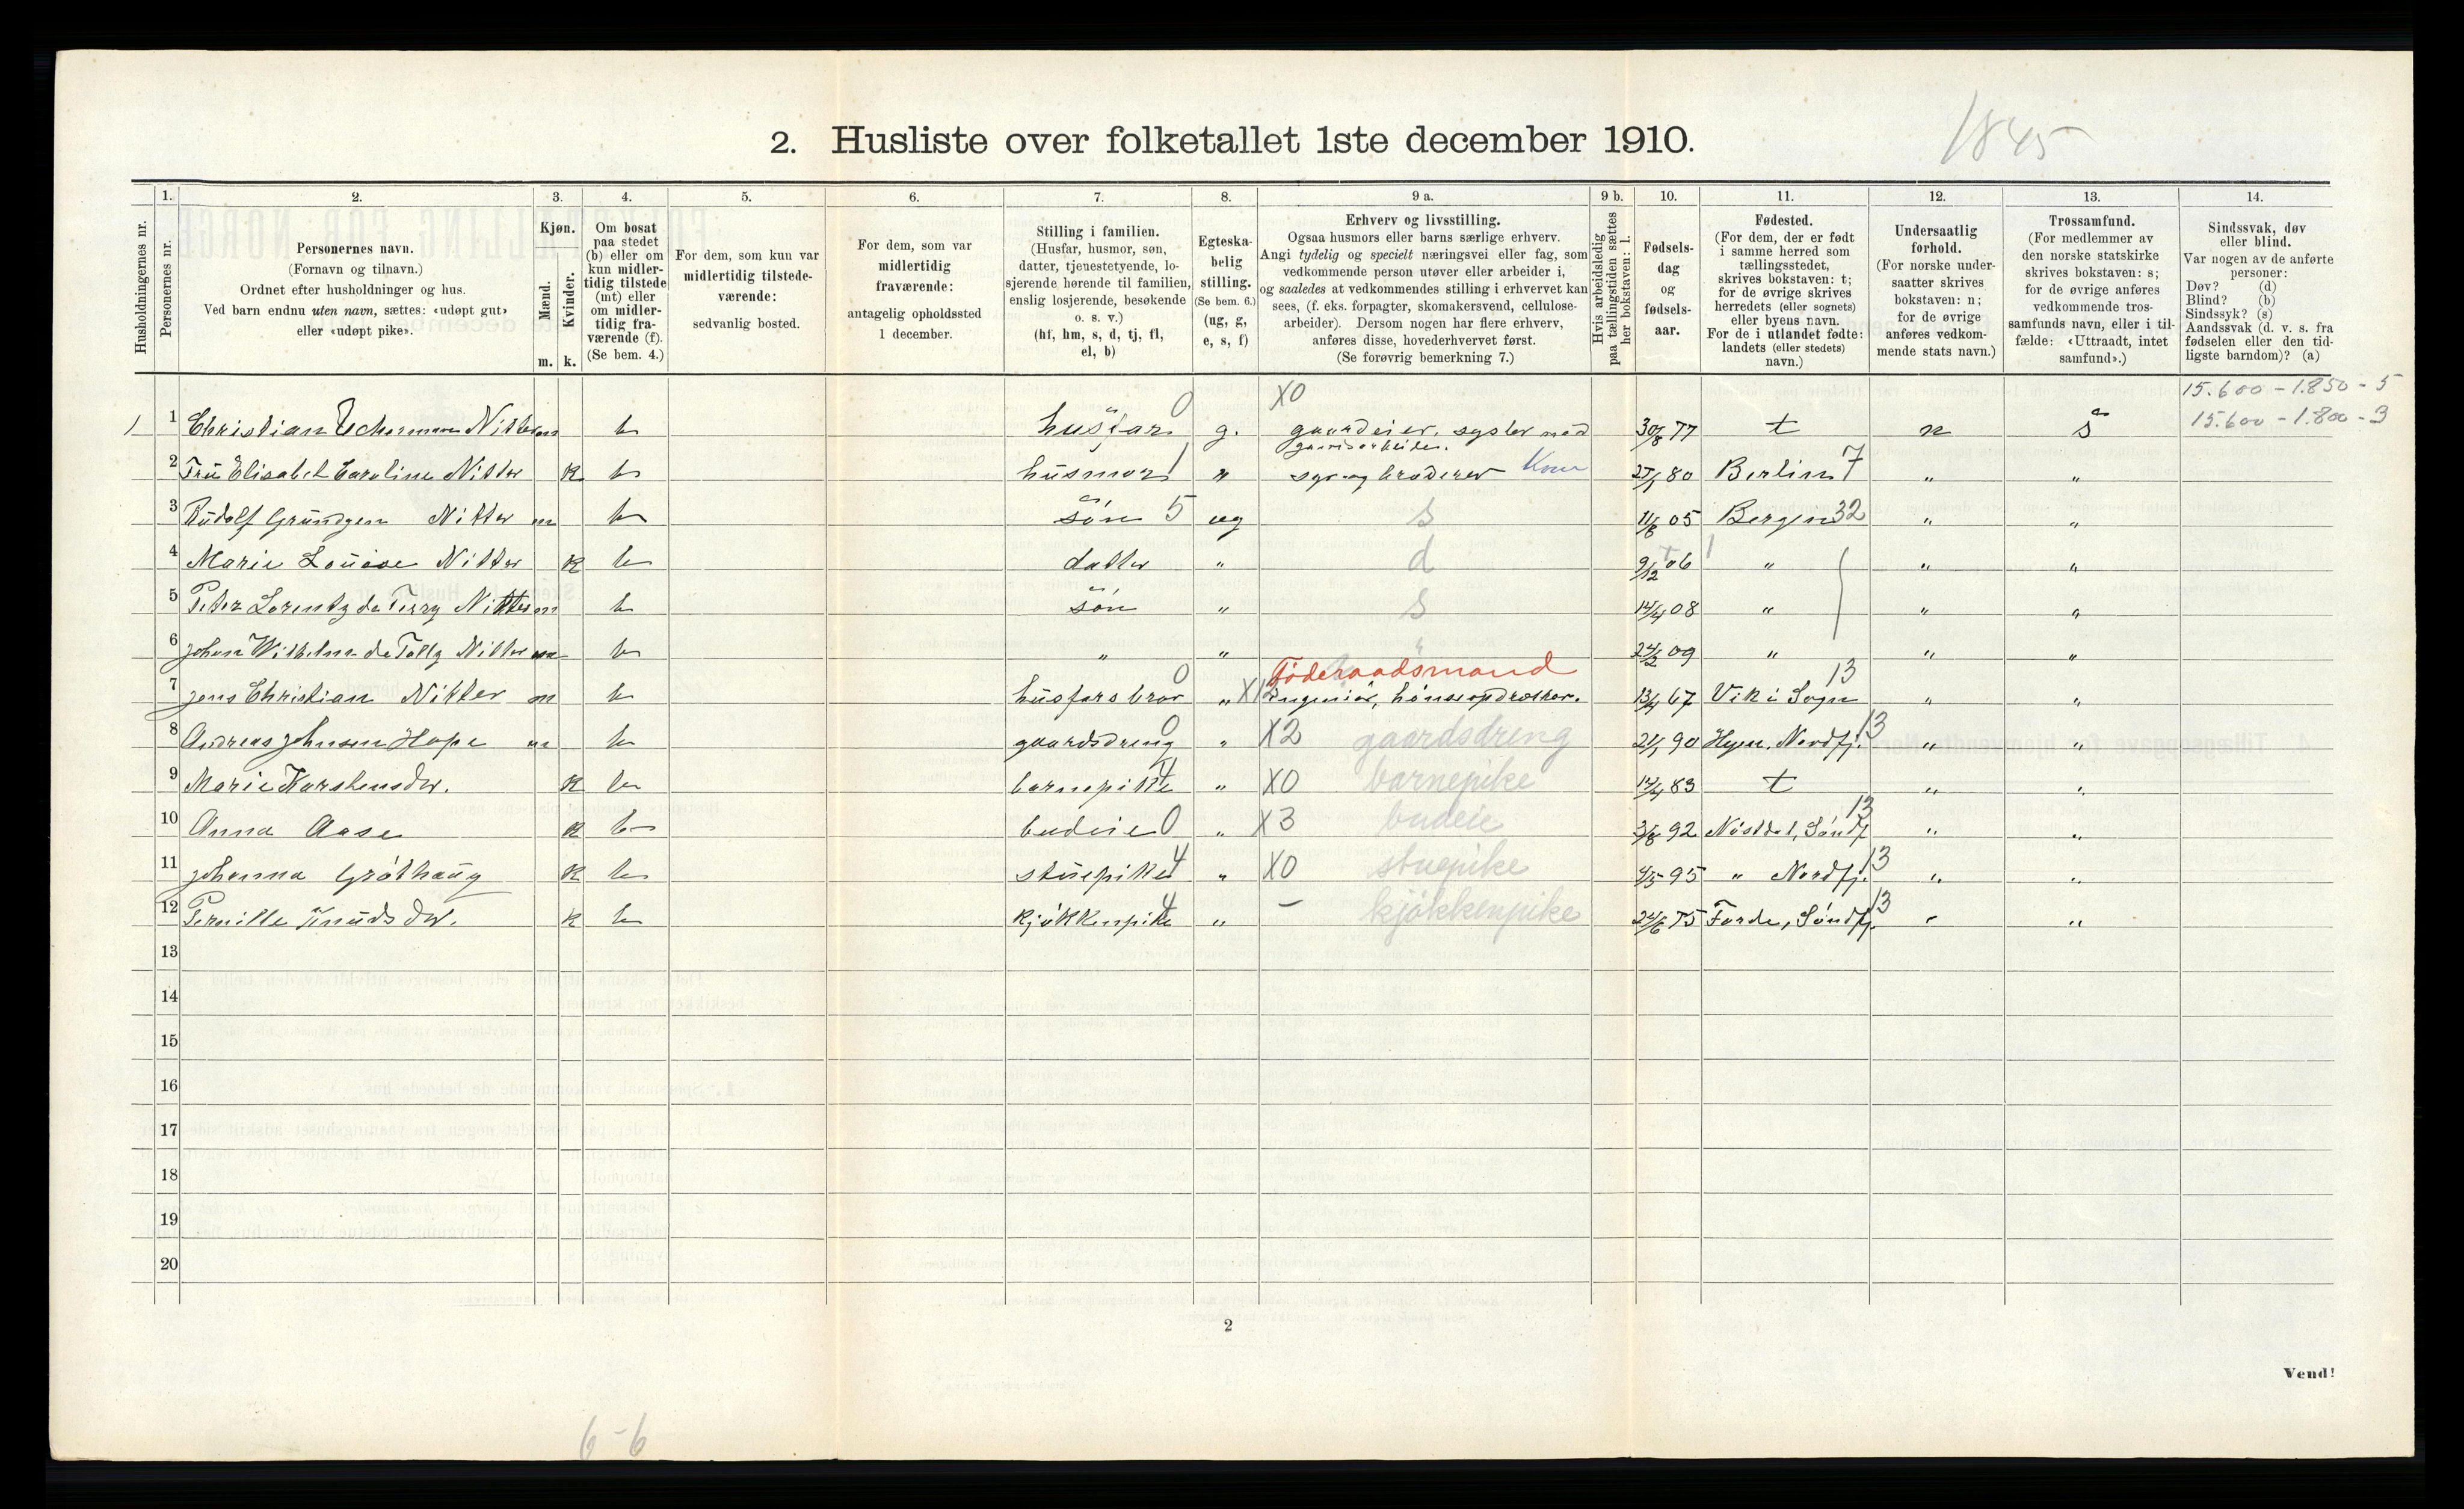 1845
2. Husliste over folketallet 1ste december 1910.
Husholdningernes nr.
1.
Personernes nr.
2.
Personernes navn.
(Fornavn og tilnavn.)
Ordnet efter husholdninger og hus.
Ved barn endnu uten navn, sættes: «udøpt gut»
eller «udøpt pike».
3.
Kjøn.
Mænd.
Kvinder.
m. k.
4.
Om bosat
paa stedet
(b) eller om
kun midler-
tidig tilstede
(mt) eller
om midler-
tidig fra-
værende (f).
(Se bem. 4.)
5.
For dem, som kun var
midlertidig tilstede-
værende:
sedvanlig bosted.
6.
For dem, som var
midlertidig
fraværende:
antagelig opholdssted
1 december.
7.
Stilling i familien.
(Husfar, husmor, søn,
datter, tjenestetyende, lo-
sjerende hørende til familien,
enslig losjerende, besøkende
o. s. v.)
(hf, hm, s, d, tj, fl,
el, b)
8.
Egteska-
belig
stilling.
(Se bem. 6.)
(ug, g,
e, s, f)
9 a.
Erhverv og livsstilling.
Ogsaa husmors eller barns særlige erhverv.
Angi tydelig og specielt næringsvei eller fag, som
vedkommende person utøver eller arbeider i,
og saaledes at vedkommendes stilling i erhvervet kan
sees, (f. eks. forpagter, skomakersvend, cellulose-
arbeider). Dersom nogen har flere erhverv,
anføres disse, hovederhvervet først.
(Se forøvrig bemerkning 7.)
9 b.
Hvis arbeidsledig
paa tællingstiden sættes
her bokstaven: l.
10.
Fødsels-
dag
og
fødsels-
aar.
11.
Fødested.
(For dem, der er født
i samme herred som
tællingsstedet,
skrives bokstaven: t;
for de øvrige skrives
herredets (eller sognets)
eller byens navn.
For de i utlandet fødte:
landets (eller stedets)
navn.)
12.
Undersaatlig
forhold.
(For norske under-
saatter skrives
bokstaven: n;
for de øvrige
anføres vedkom-
mende stats navn.)
13.
Trossamfund.
(For medlemmer av
den norske statskirke
skrives bokstaven: s;
for de øvrige anføres
vedkommende tros-
samfunds navn, eller i til-
fælde: «Uttraadt, intet
samfund».)
14.
Sindssvak, døv
eller blind.
Var nogen av de anførte
personer:
Døv? (d)
Blind? (b)
Sindssyk? (s)
Aandssvak (d. v. s. fra
fødselen eller den tid-
ligste barndom)? (a)
15.600 - 1.850 - 5
15.600 - 1.800 - 3
1 1 Christian Uchermann Nitter m b husfar 0 g. X0 gaardeier, sysler med 30/8 77 t n s
2 Fru Elisabet Caroline Nitter k b husmor 1 " syr og broderer 80 Berlin 7 " "
3 Rudolf Gründgen Nitter m b søn 5 ug s 05 Bergen 32 " "
4 Marie Louise Nitter k b datter " d 9/12 06 " " "
5 Peter Lorentz de Ferry Nitter m b søn " s 14/4 08 " " "
6 Johan Wilhelm de Tolly Nitter m b " " " 24/2 09 " " "
Føderaadsmand
7 Jens Christian Nitter m b husfars bror 0 " Ingeniør, hønseopdrætter. 13/4 67 Vik i Sogn 13 " "
8 Andreas Johnsen Hope m b gaardsdreng 0 " X2 gaardsdreng 90 Hyen, Nordfj. 13 " "
9 Marie Karstensdtr. k b barnepike 4 " X0 barnepike 83 t " "
10 Anna Aase k b budeie 0 " X3 budeie 3/8 92 Nøstdal, Søndfj 13 " "
11 Johanna Gróthaug k b stuepike 4 " X0 stuepike 4/5 95 " Nordfj. 13 " "
12 Pernille Knudsdtr. k b kjøkkenpike 4 " - kjøkkenpike 24/6 75 Førde, Søndfj. 13 " "
13
14
15
16
17
18
19
20
2
Vend!
6-6